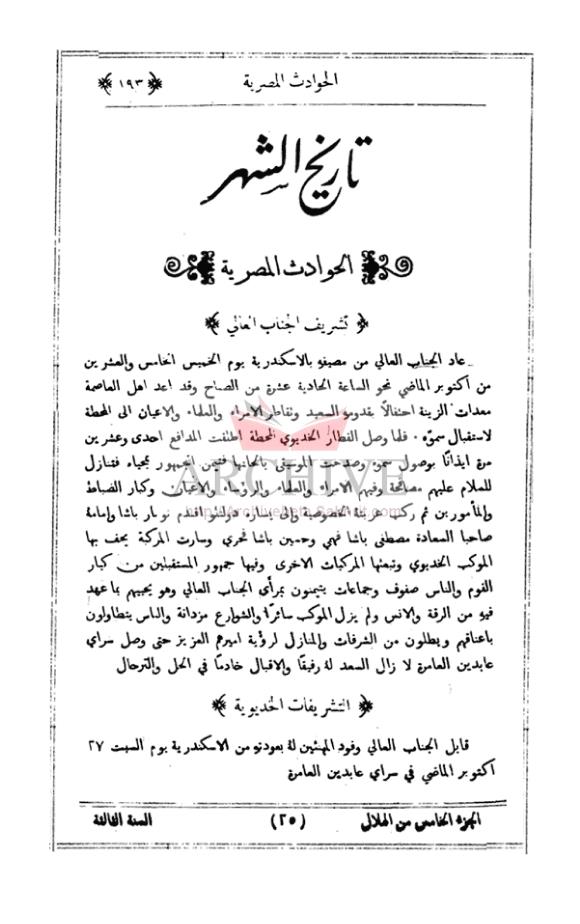 الحوادث المصرية ﴿ ١٩٣ ﴾
تاريخ الشهر
الحوادث المصرية
﴿ تشريف الجناب العالي ﴾
عاد الجناب العالي من مصيفهِ بالاسكندرية يوم الخميس الخامس والعشرين
من أكتوبر الماضي نحو الساعة الحادية عشرة من الصباح وقد اعد اهل العاصمة
معدات الزينة احتفالاً بقدومهِ السعيد وتقاطر الامراء والعلماء والاعيان الى المحطة
لاستقبال سموّهِ ٠ فلما وصل القطار الخديوي المحطة اطلقت المدافع احدى وعشرين
مرة ايذانًا بوصول سموهِ وصدحت الموسيقى بالحانها فتيمن الجمهور بمحياه فتنازل
للسلام عليهم مصافحة وفيهم الامراء والعلماء والرؤساء والاعيان وكبار الضباط
والمأمورين ثم ركب عربتهُ الخصوصية والى يساره دولتلو افندم نوبار باشا وامامهُ
صاحبا السعادة مصطفى باشا فهمي وحسين باشا فخري وسارت المركبة يحف بها
الموكب الخديوي وتبعتها المركبات الاخرى وفيها جمهور المستقبلين من كبار
القوم والناس صفوف وجماعات يتيمنون بمرأى الجناب العالي وهو يحييهم بما عهد
فيهِ من الرقة والانس ولم يزل الموكب سائرًا والشوارع مزدانة والناس يتطاولون
باعناقهم ويطلون من الشرفات والمنازل لرؤية اميرهم العزيز حتى وصل سراي
عابدين العامرة لا زال السعد لهُ رفيقًا والاقبال خادمًا في الحل والترحال
﴿ التشريفات الخديوية ﴾
قابل الجناب العالي وفود المهنئين لهُ بعودتهِ من الاسكندرية يوم السبت ٢٧
اكتوبر الماضي في سراي عابدين العامرة
الجزء الخامس من الهلال (٢٥) السنة الثالثة
ARCHIVE